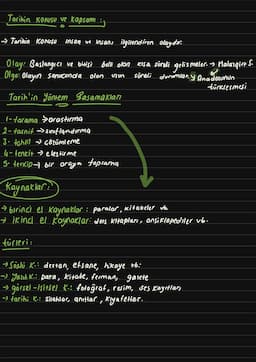 Tarihin konusu ve kapsamı:
→ Tarihin konusu insan ve insanı ilgilendiren olaydır.
Olay: Başlangıcı ve bitişi belli olan kısa süreli gelişmeler. → Malazgirt S.
Olgu: Olayın sonucunda olan uzun süreli durumlar. → Anadolunun
türkleşmesi
Tarih'in Yöntem Basamakları
1- tarama → araştırma
2- tasnif → sınıflandırma
3- tahlil → çözümleme
4- tenkit → eleştirme
5- terkip → bir araya toplama
Kaynaklar:
→ birinci el kaynaklar: paralar, kitabeler vb.
→ ikinci el kaynaklar: ders kitapları, ansiklopediler vb.
türleri:
→ Sözlü K.: destan, efsane, hikaye vb.
→ Yazılı K.: para, kitabe, ferman, gazete
→ görsel-işitsel K.: fotoğraf, resim, ses kayıtları
→ tarihi K.: silahlar, anıtlar, kıyafetler.